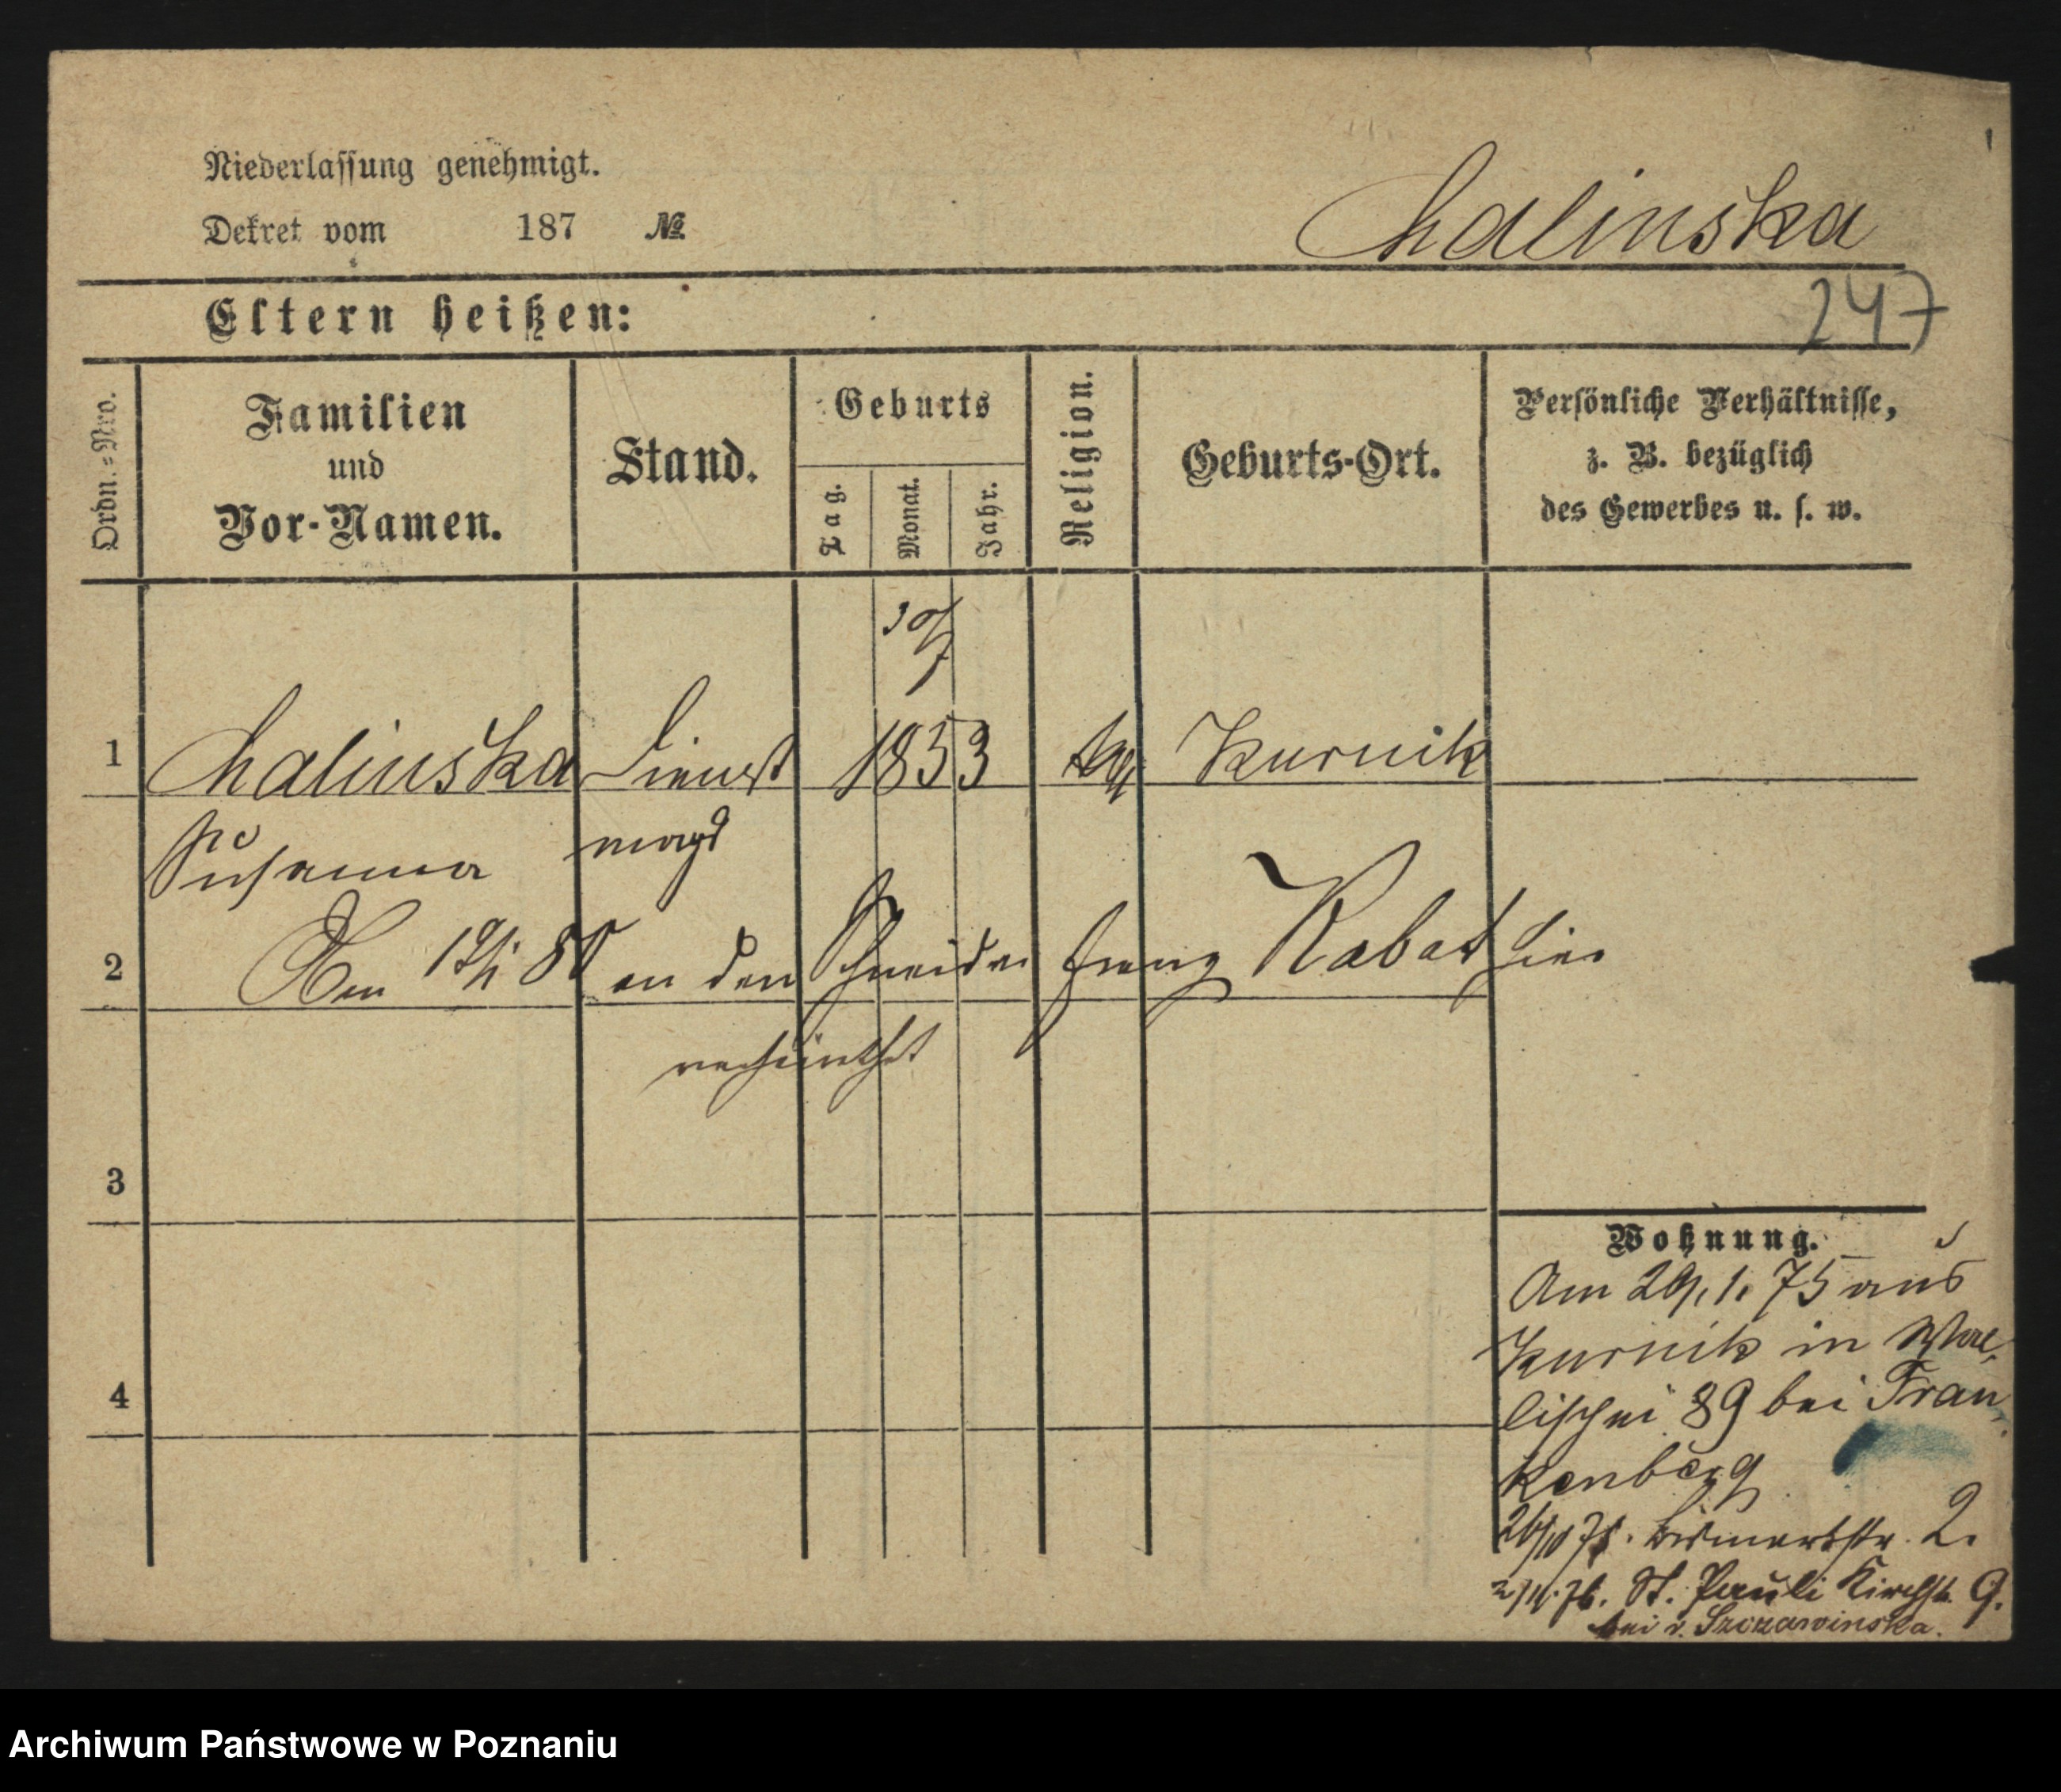 Niederlassung genehmigt.
Dekret vom 187 №
Chalinska
247
Eltern heißen:
Ordn.=Nro.
Familien
und
Vor-Namen.
Stand.
Geburts
Tag.
Monat.
Jahr.
Religion.
Geburts-Ort.
Persönliche Verhältnisse,
z. B. bezüglich
des Gewerbes u. s. w.
30/7
1 Chalinska Dienst 1853 Kurnik
Susanna magd
2 Am 80 an den Schneider Franz Kabat hier
verheirathet
3
4
Wohnung.
Am 29.1.75 aus
Kurnik in Wal-
lischei 89 bei Fran-
kenberg
Bismarkstr. 2.
St. Pauli Kirchstr. 9.
bei v. Szczawinska.
Archiwum Państwowe w Poznaniu